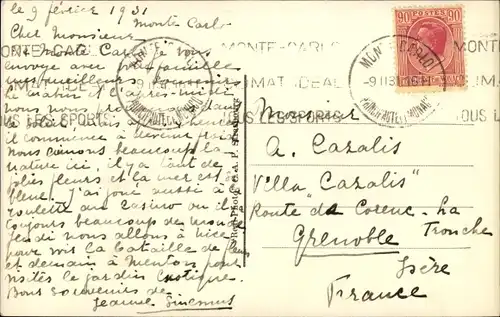 le 9 février 1931
Monte Carlo
Cher Monsieur
De Monte Carlo je vous
envoye avec
meilleurs souvenirs
le matin et l'après-midi
nous nous
le soleil
il commence à devenir froid
Nous aimons beaucoup la
nature ici, il y a tant de
jolies fleurs et la mer est
bleue. J'ai joué aussi à
roulette au casino où il
toujours beaucoup de monde
Jeudi nous allons à Nice
pour voir la Bataille de Fleurs
et demain à Menton pour
visiter le jardin Exotique.
Bons Souvenirs de
Jeanne
MONTE-CARLO
CLIMAT IDEAL
TOUS LES SPORTS
MONTE-CARLO
PRINCIPAUTE DE MONACO
POSTES
90 90
MONTE-CARLO
9 II 31
PRINCIPAUTE DE MONACO
Monsieur
A. Cazalis
Villa "Cazalis"
Route de Corenc - La
Tronche
Grenoble
Isère
France